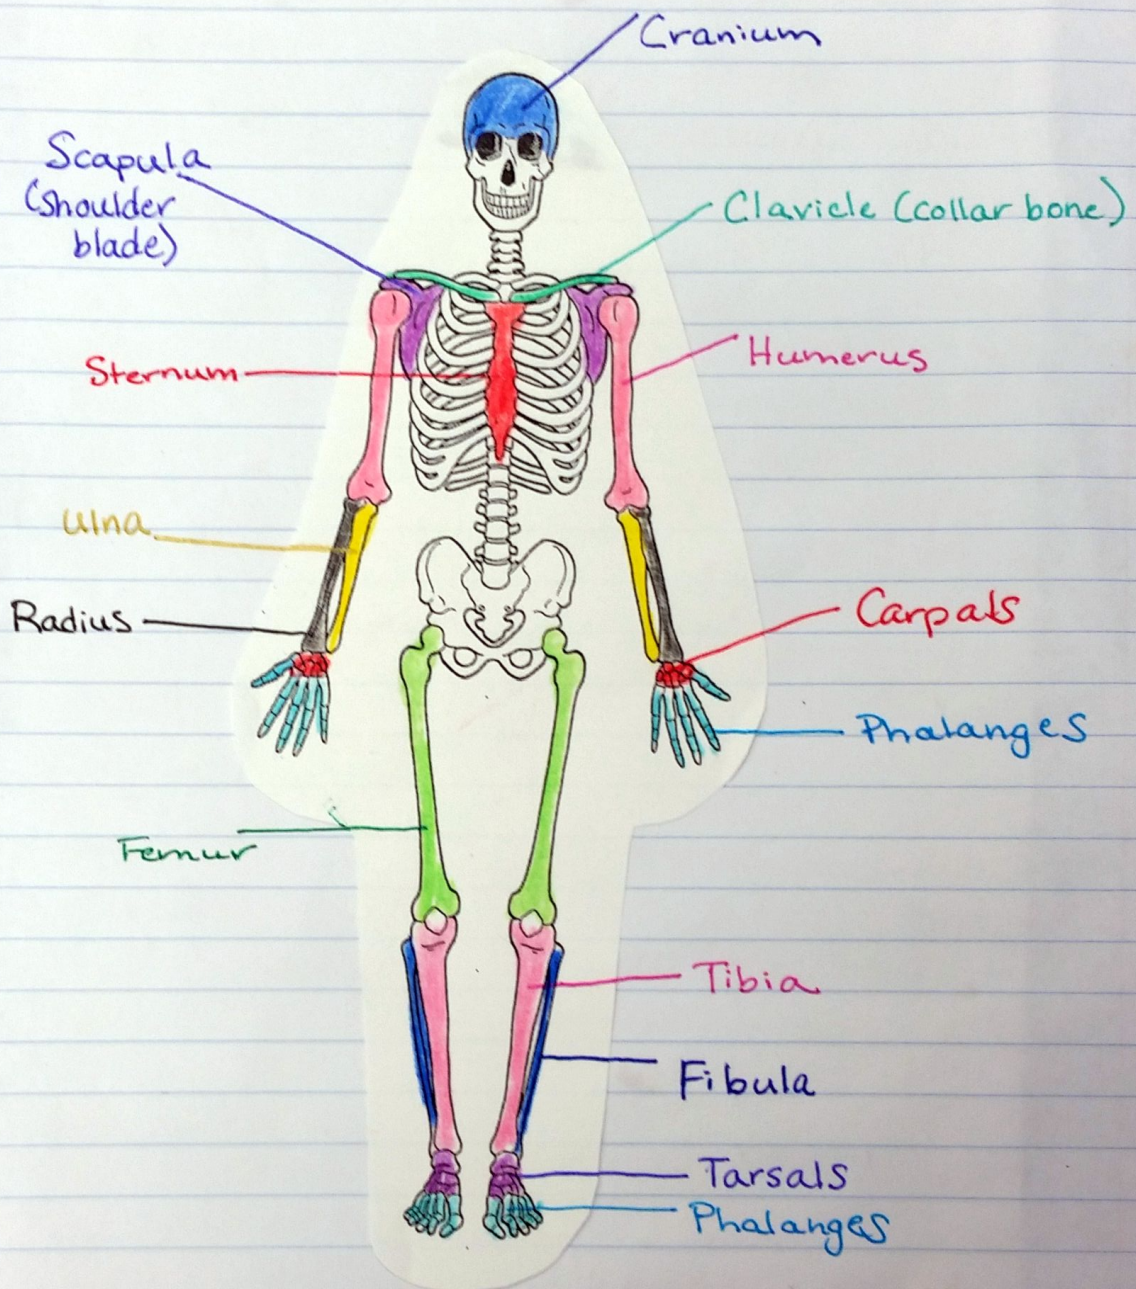 Cranium
Scapula
(shoulder
blade)
Clavicle (collar bone)
Sternum
Humerus
Ulna
Radius
Carpals
Phalanges
Femur
Tibia
Fibula
Tarsals
Phalanges